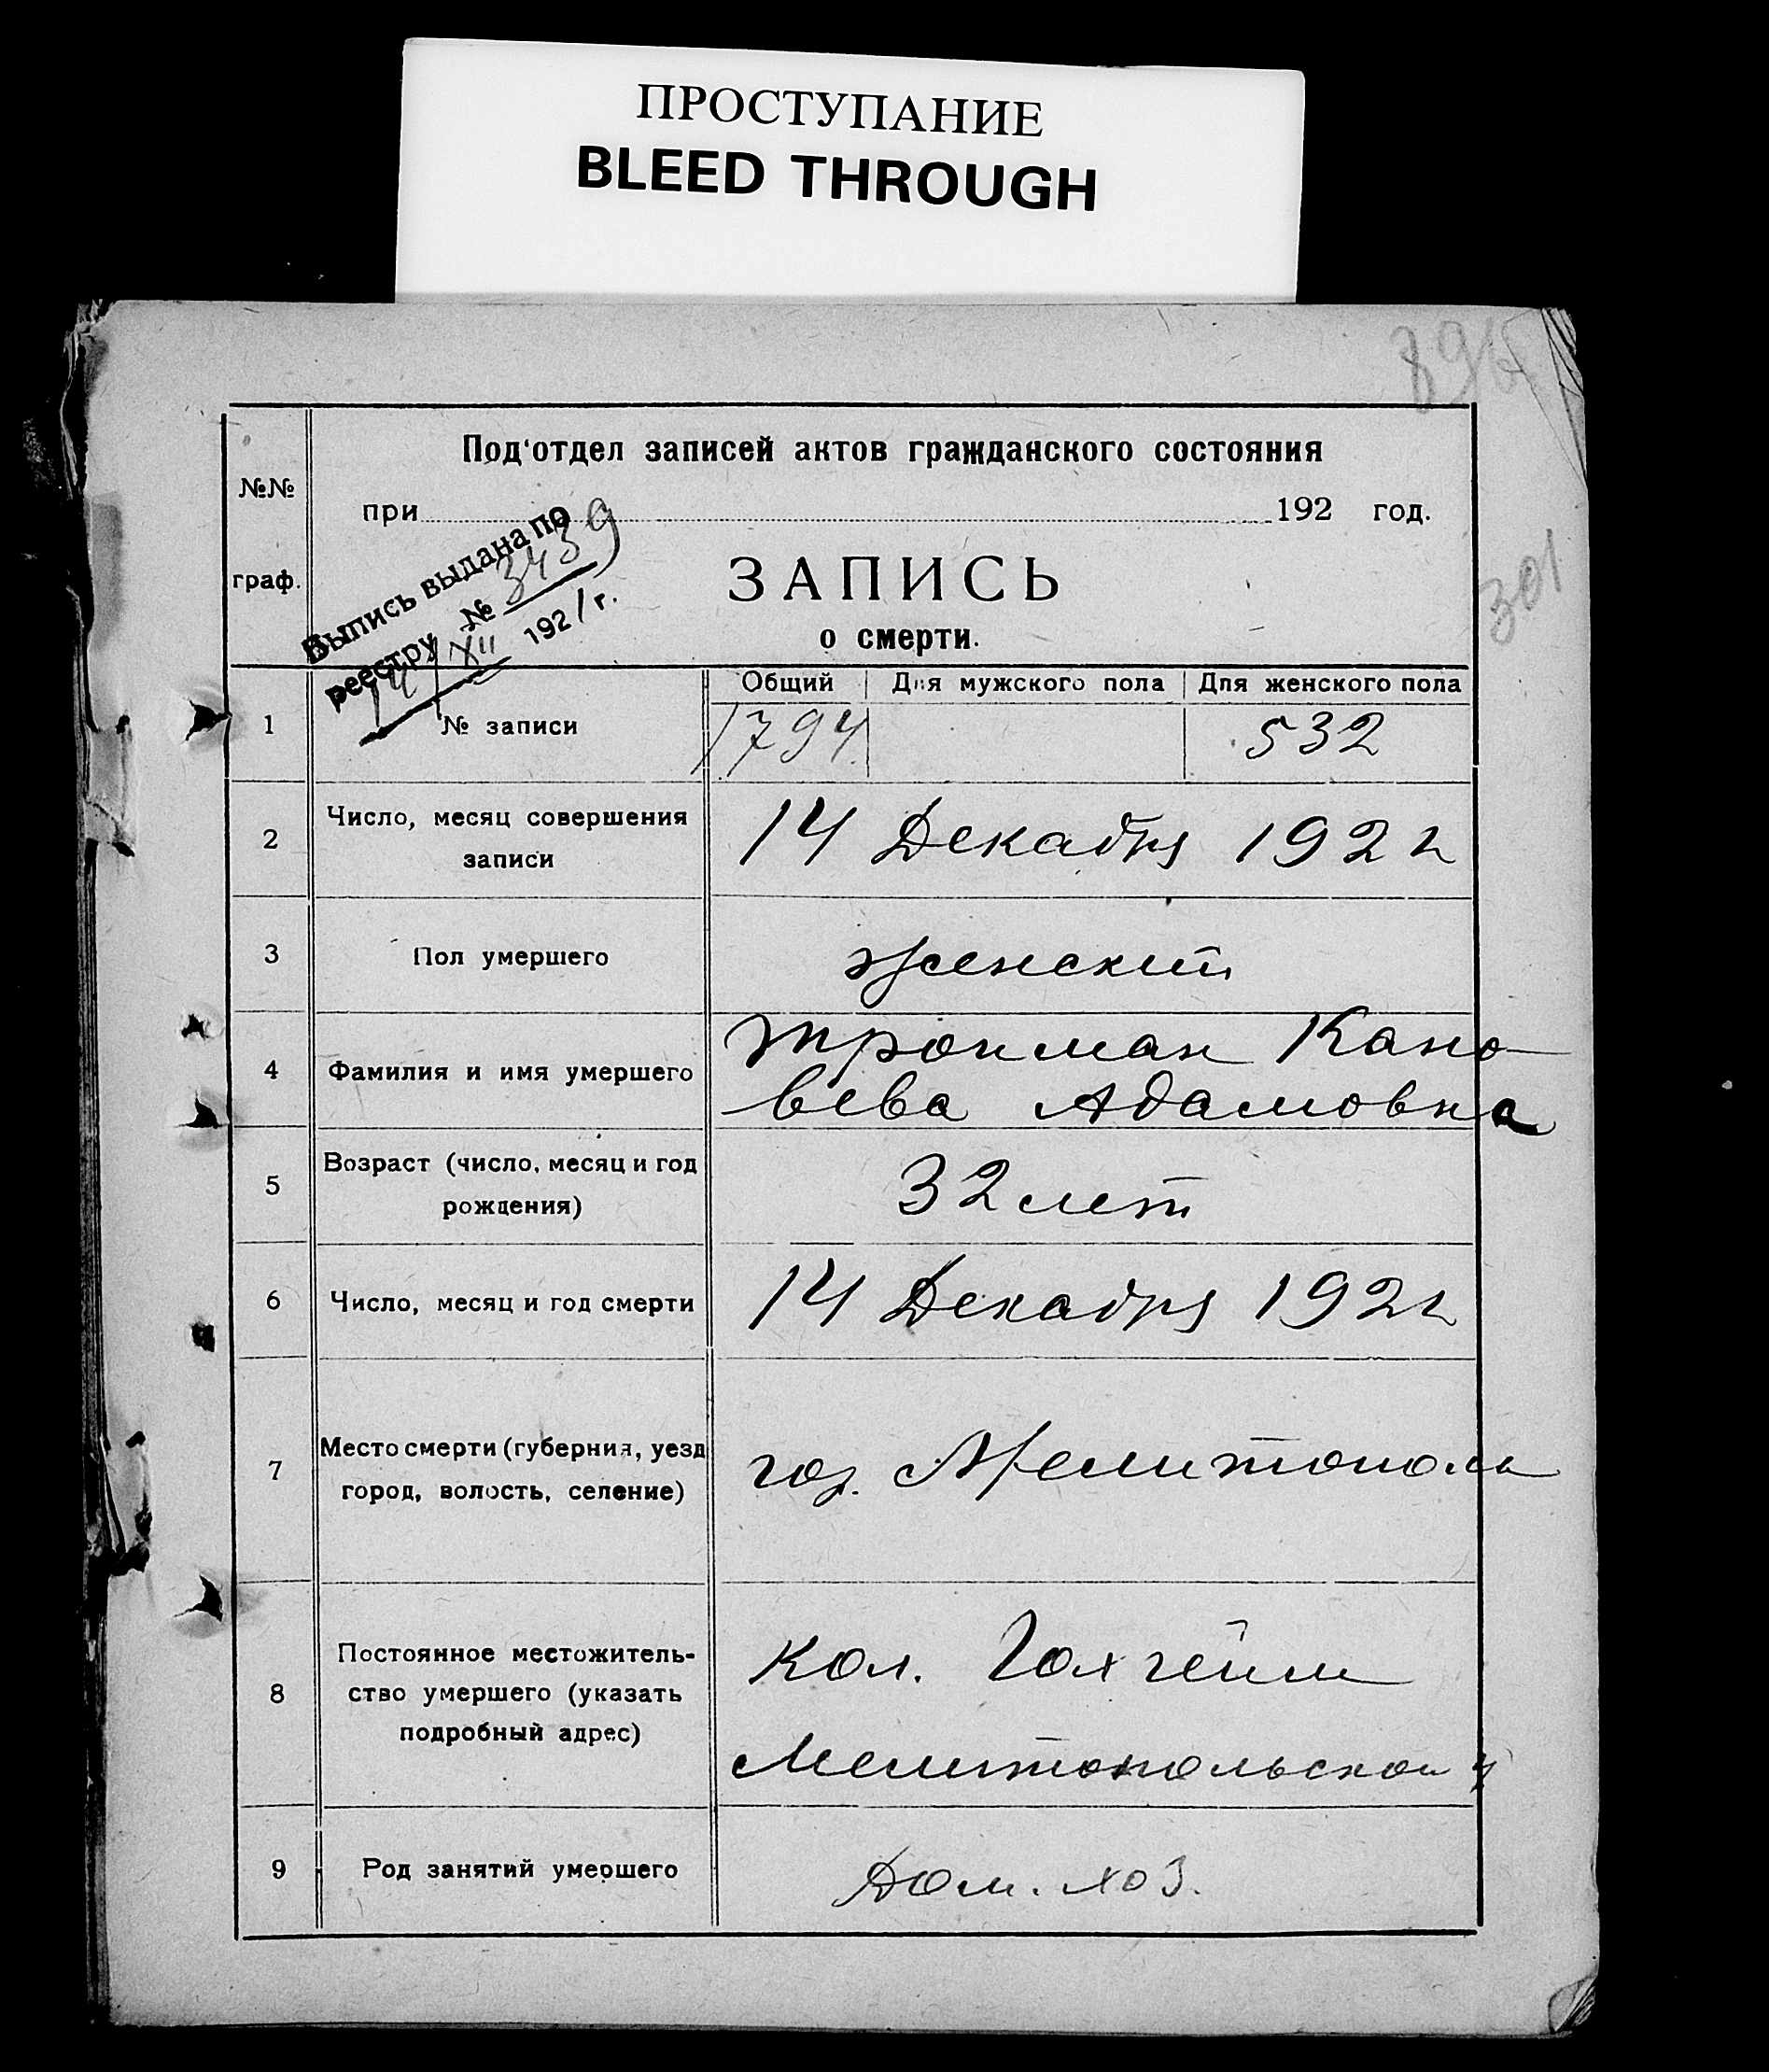 ПРОСТУПАНИЕ
BLEED THROUGH
301
№№
граф.
Под'отдел записей актов гражданского состояния
при 192 год.
Выпись выдана по
реестру № 3439
14/XII 1921 г.
ЗАПИСЬ
о смерти.
Общий Для мужского пола Для женского пола
1 № записи 1794 532
2 Число, месяц совершения
записи
14 Декабря 1921
3 Пол умершего женский
4 Фамилия и имя умершего
Тропман Кано-
вева Адамовна
5 Возраст (число, месяц и год
рождения)
32 лет
6 Число, месяц и год смерти 14 Декабря 1921
7 Место смерти (губерния, уезд
город, волость, селение)
гор. Мелитополь
8 Постоянное местожитель-
ство умершего (указать
подробный адрес)
кол. Гохгейм
Мелитопольского у
9 Род занятий умершего Дом. хоз.